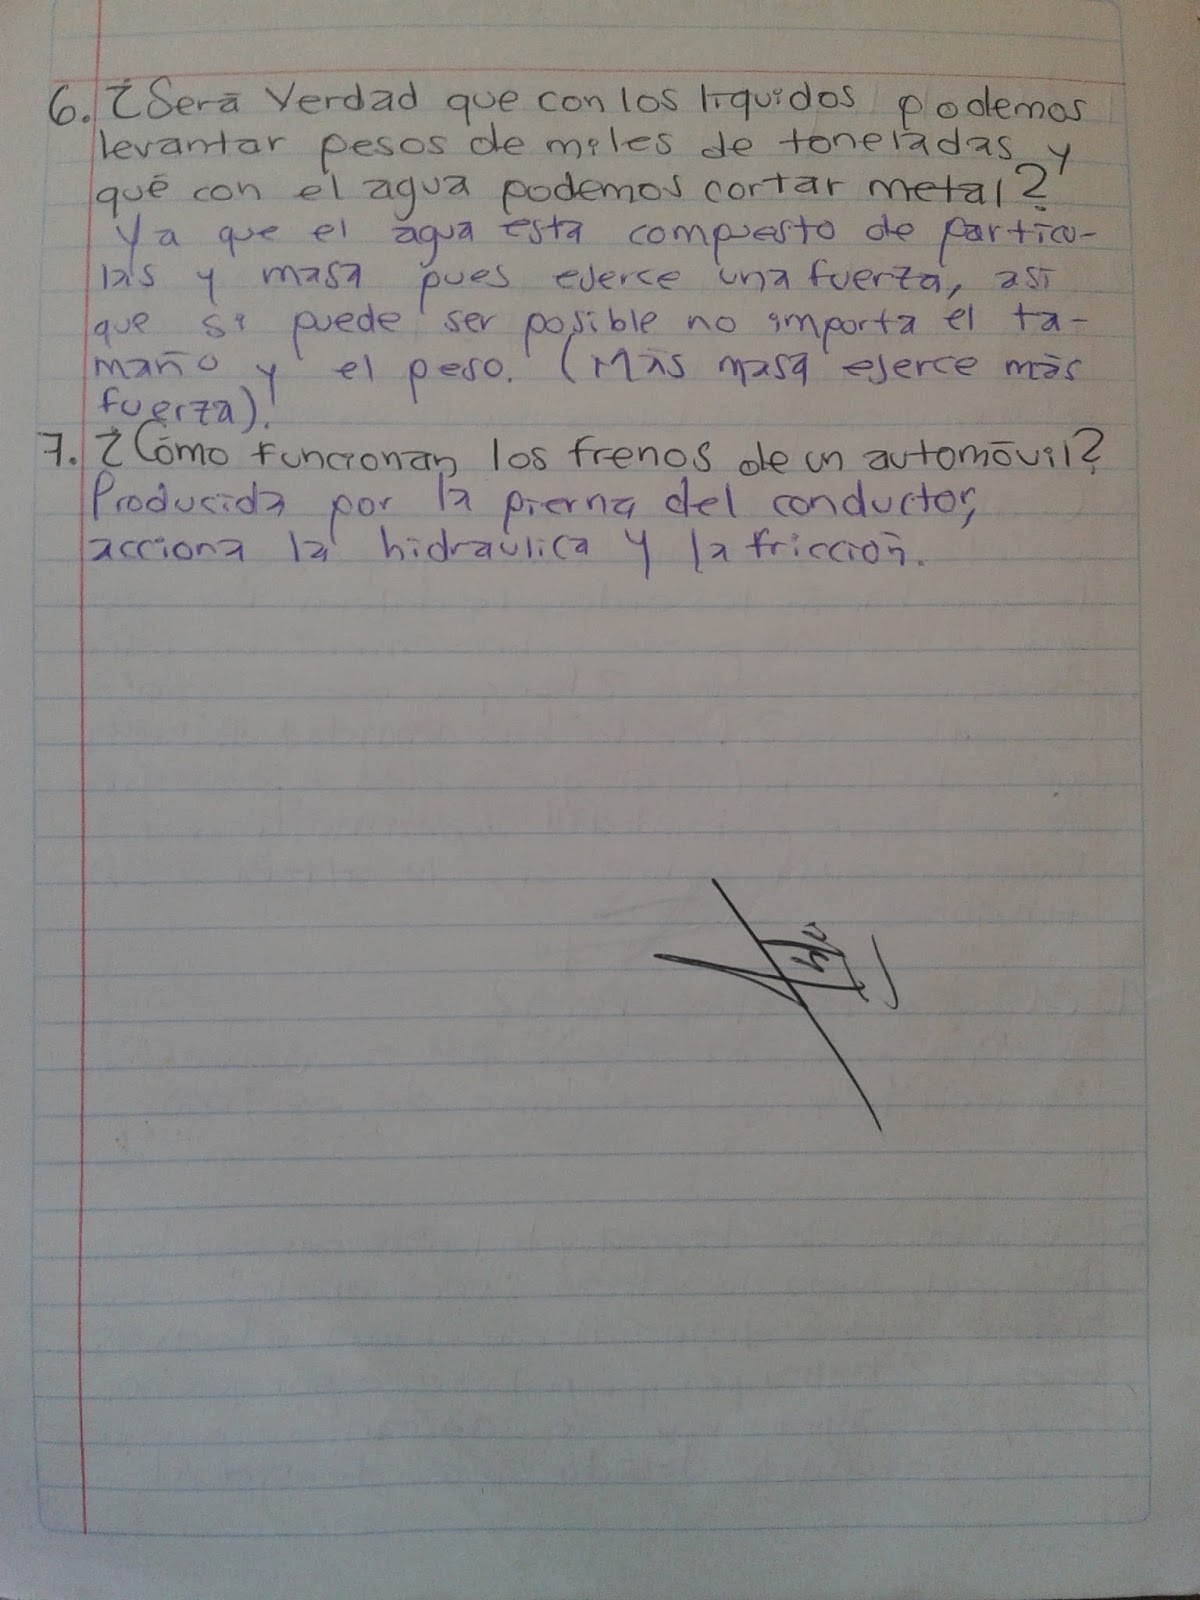 6. ¿Será Verdad que con los líquidos podemos
levantar pesos de miles de toneladas y
qué con el agua podemos cortar metal?
Ya que el agua esta compuesto de partícu-
las y masa pues ejerce una fuerza, así
que si puede ser posible no importa el ta-
maño y el peso. (Más masa ejerce más
fuerza).
7. ¿Cómo funcionan los frenos de un automóvil?
Producida por la pierna del conductor,
acciona la hidraúlica y la fricción.